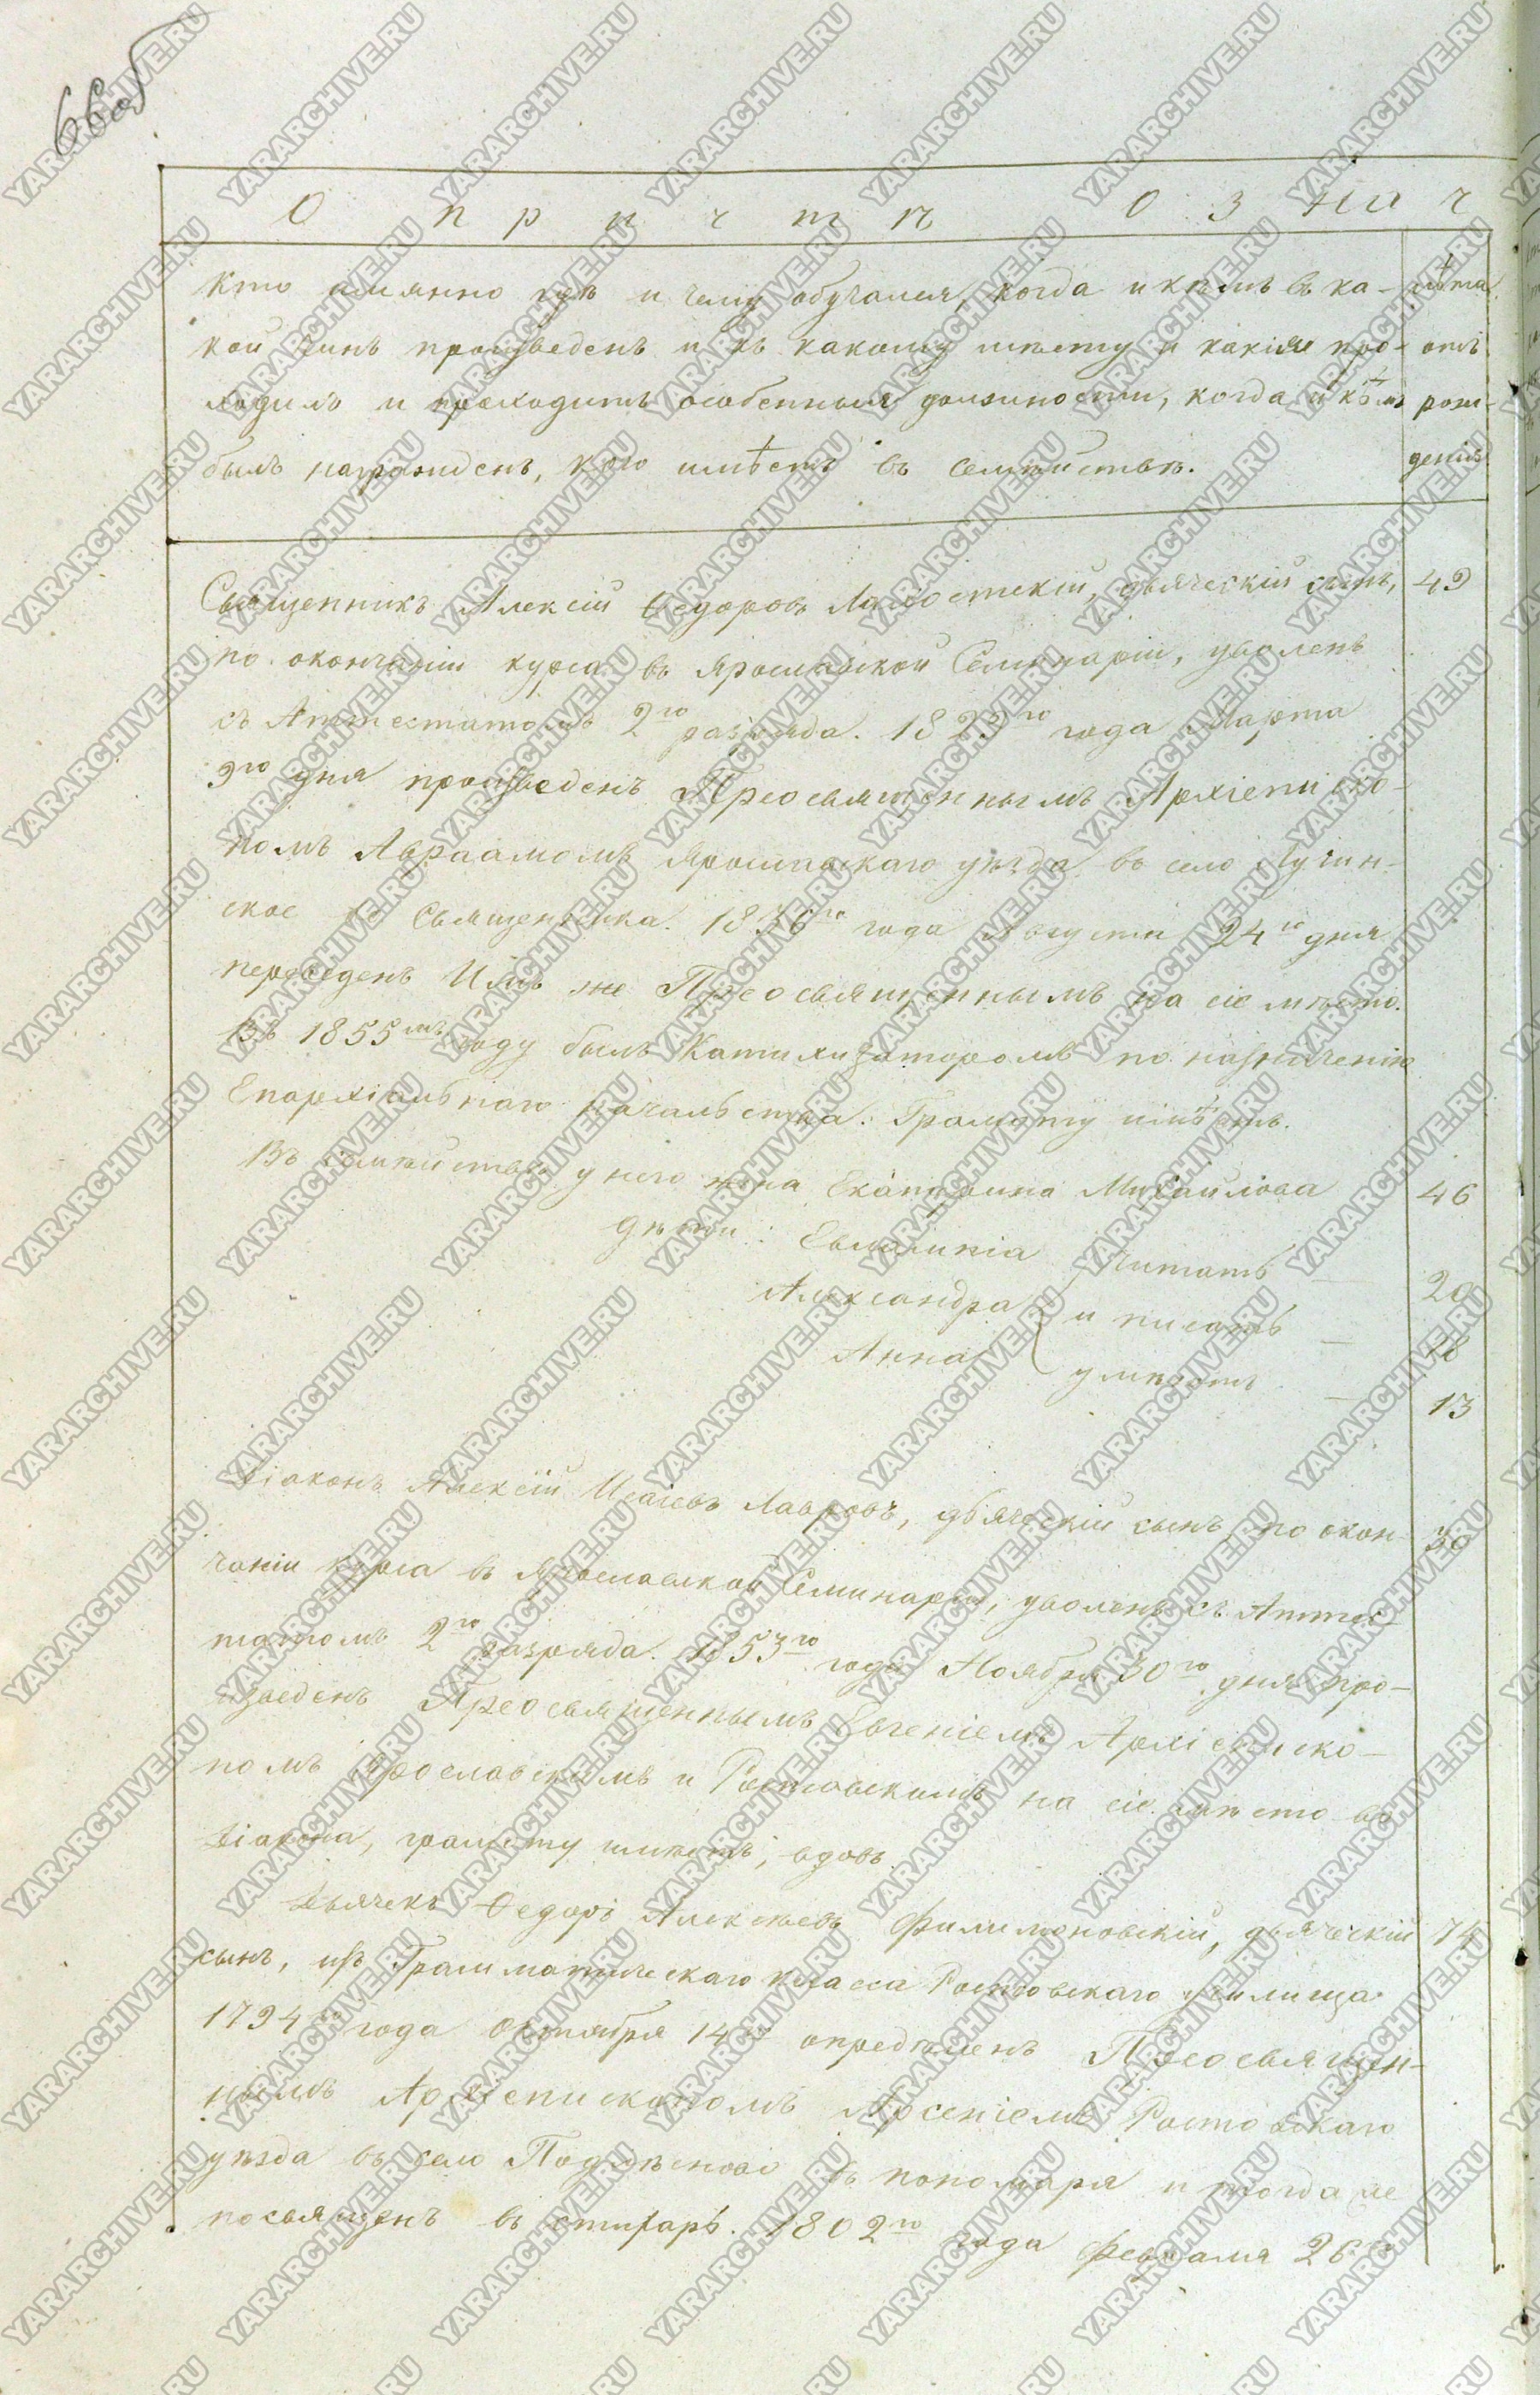 66 об
О причтѣ озна ч
Кто имянно гдѣ и чему обучался, когда и кѣмъ въ ка- лѣта
кой чинъ произведенъ и къ какому мѣсту и какіяе про- отъ
ходилъ и проходитъ особенныя должности, когда и кѣмъ рож-
былъ награжденъ, кого имѣетъ въ семѣйствѣ. денія
Священникъ Алексій Ѳедоровъ дьяческій сынъ, 49
по окончаніи курса въ Ярославской Семинаріи, уволенъ
съ Аттестатомъ 2го разряда. 1823го года Марта
9го дня произведенъ Преосвященнымъ Архіеписко-
помъ Авраамомъ Ярославскаго уѣзда въ село Лучин-
ское во Священника. 1836го года Августа 24го дня
переведенъ Имъ же Преосвященнымъ на сіе мѣсто.
Въ 1855мъ году былъ Катихизаторомъ по назначенію
Епархіальнаго начальства. Грамоту имѣетъ.
Въ семѣйствѣ у него жена Екатерина Михайлова 46
Дѣти: Евлампія Читать — 20
Александра и писать — 18
Анна умѣютъ — 13
Діаконъ Алексій Исаіевъ Лавровъ, дьяческій сынъ, по окон- 30
чаніи курса въ Ярославской Семинаріи, уволенъ съ Аттес-
татомъ 2го разряда. 1853го года Ноября 30го дня про-
изведенъ Преосвященнымъ Евгеніемъ Архіеписко-
помъ Ярославскимъ и Ростовскимъ на сіе мѣсто во
Діакона, грамоту имѣетъ; вдовъ.
Дьячекъ Ѳедоръ Алексѣевъ Филимоновскій, дьяческій 74
сынъ, изъ Грамматическаго класса Ростовскаго училища
1794го года Октября 14го опредѣленъ Преосвящен-
нымъ Архіепископомъ Арсеніемъ Ростовскаго
уѣзда въ село въ пономаря и тогда же
посвященъ въ стихарь. 1802го года Февраля 26го
YARARCHIVE.RU